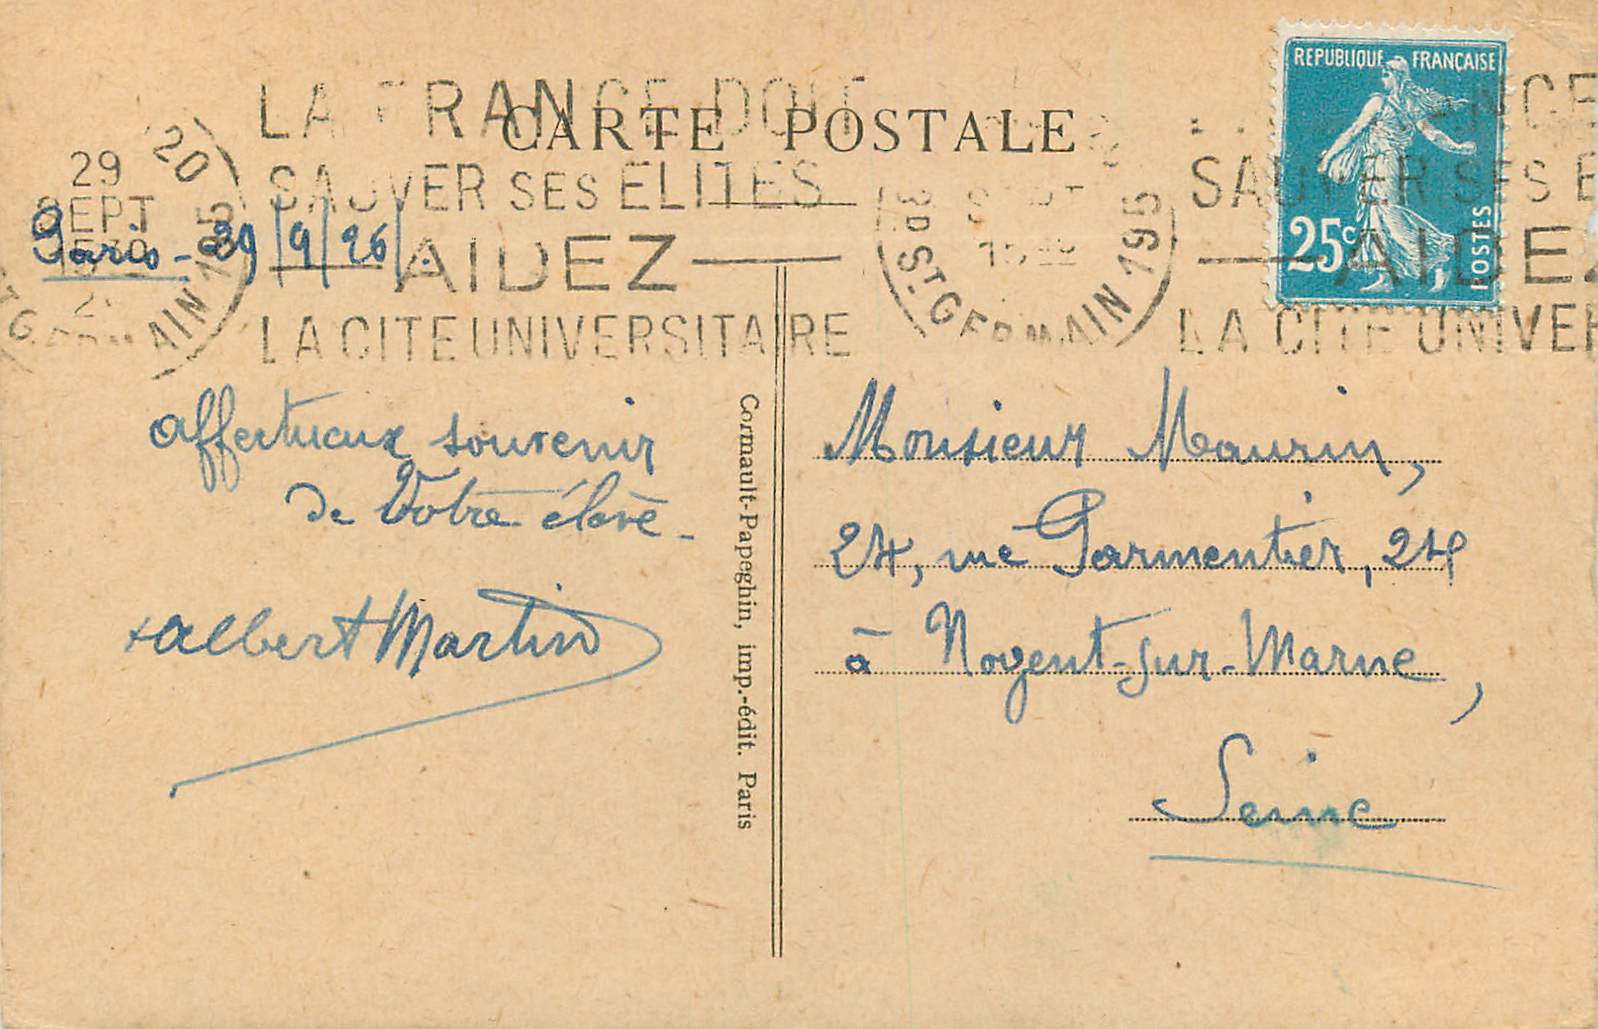 CARTE POSTALE
REPUBLIQUE FRANÇAISE
25c
POSTES
LA FRANCE DOIT
SAUVER SES ELITES
AIDEZ
LA CITE UNIVERSITAIRE
20
29
SEPT
ST GERMAIN 195
3D ST GERMAIN 195
SAUVER SES E
AIDEZ
LA CITE UNIVER
Paris - 29/9/26.
affectueux souvenir
de Votre élève -
Albert Martin
Cormault-Papeghin, imp.-édit. Paris
Monsieur Maurin,
24, rue Parmentier, 24
à Nogent-sur-Marne,
Seine